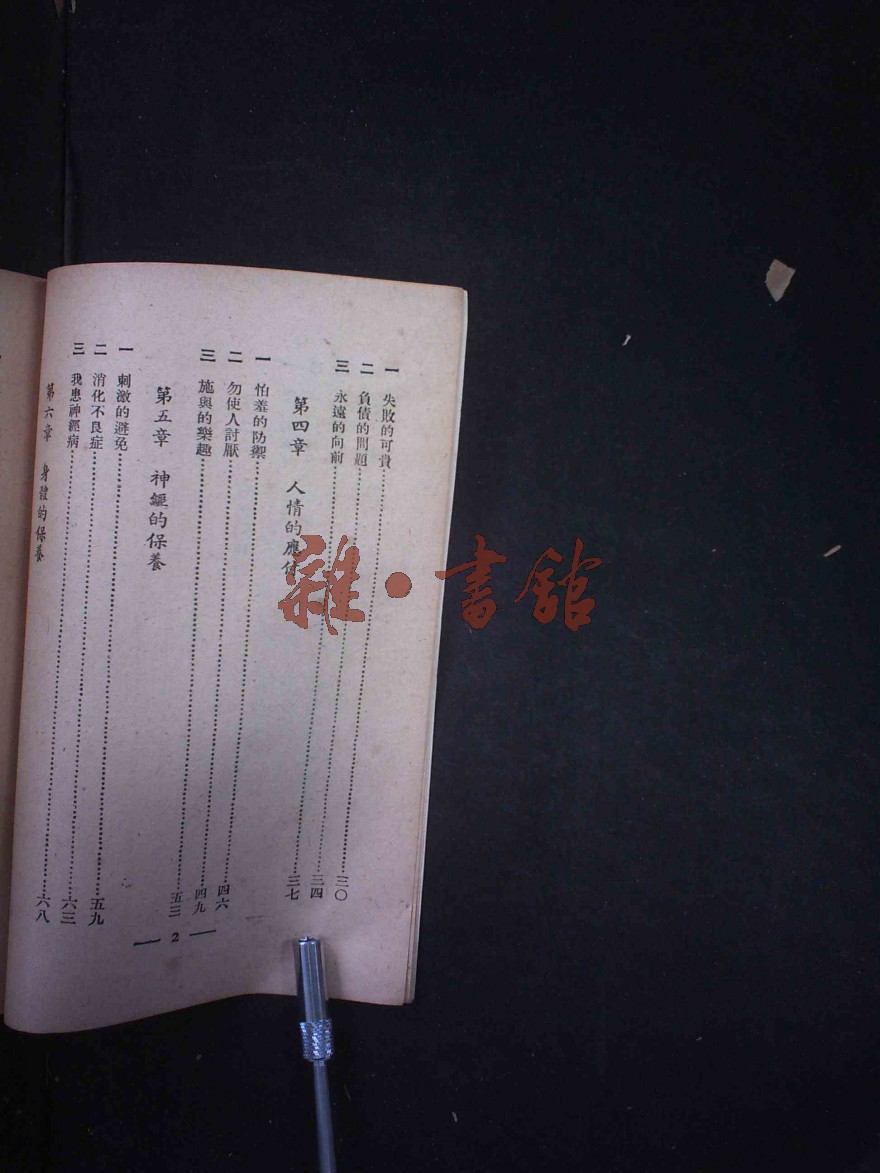 一 失敗的可貴……三〇
二 負債的問題……三四
三 永遠的向前……三七
第四章 人情的應付
一 怕羞的防禦……四六
二 勿使人討厭……四九
三 施與的樂趣……五三
第五章 神經的保養
一 刺激的避免……五九
二 消化不良症……六三
三 我患神經病……六八
第六章 身體的保養
— 2 —
雜·書館